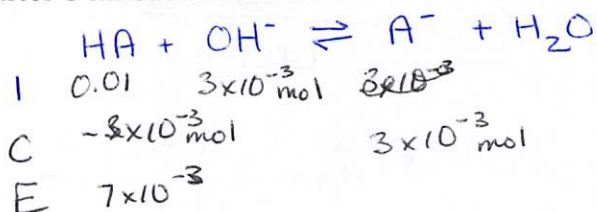 HA + OH⁻ ⇌ A⁻ + H₂O
I 0.01 3×10⁻³ mol 3×10⁻³
C -3×10⁻³ mol 3×10⁻³ mol
E 7×10⁻³